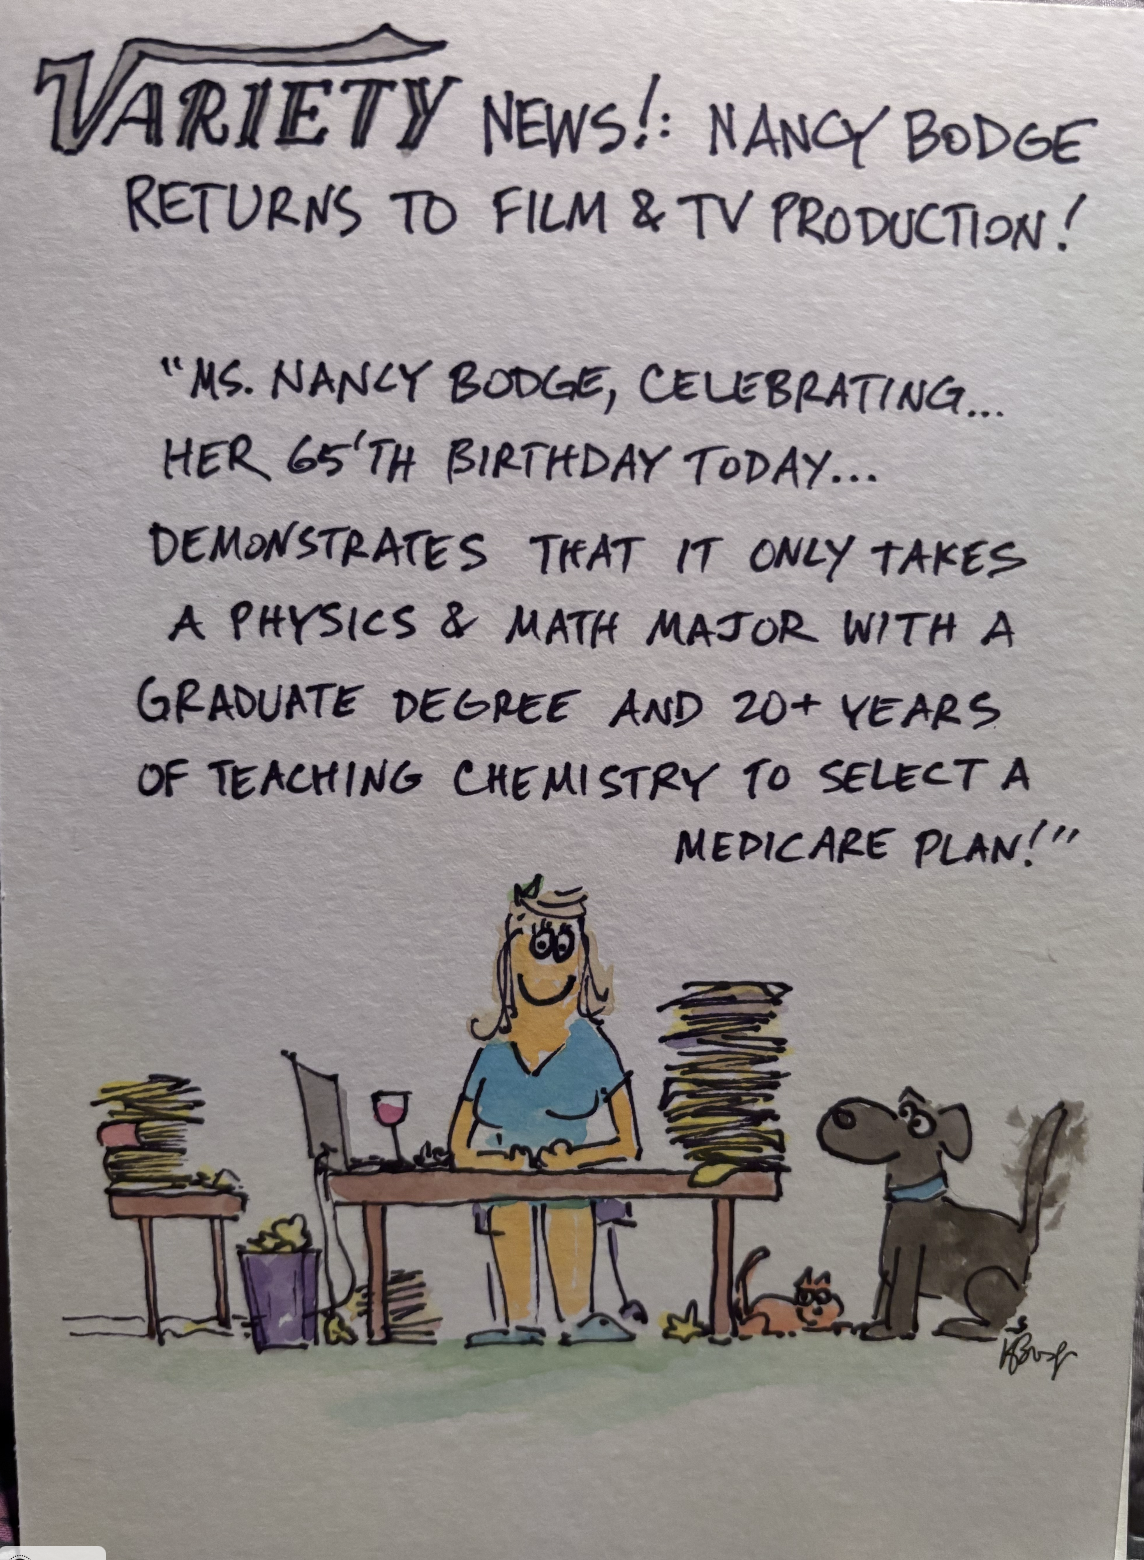 VARIETY NEWS!: NANCY BODGE
RETURNS TO FILM & TV PRODUCTION!
"MS. NANCY BODGE, CELEBRATING...
HER 65'TH BIRTHDAY TODAY...
DEMONSTRATES THAT IT ONLY TAKES
A PHYSICS & MATH MAJOR WITH A
GRADUATE DEGREE AND 20+ YEARS
OF TEACHING CHEMISTRY TO SELECT A
MEDICARE PLAN!"